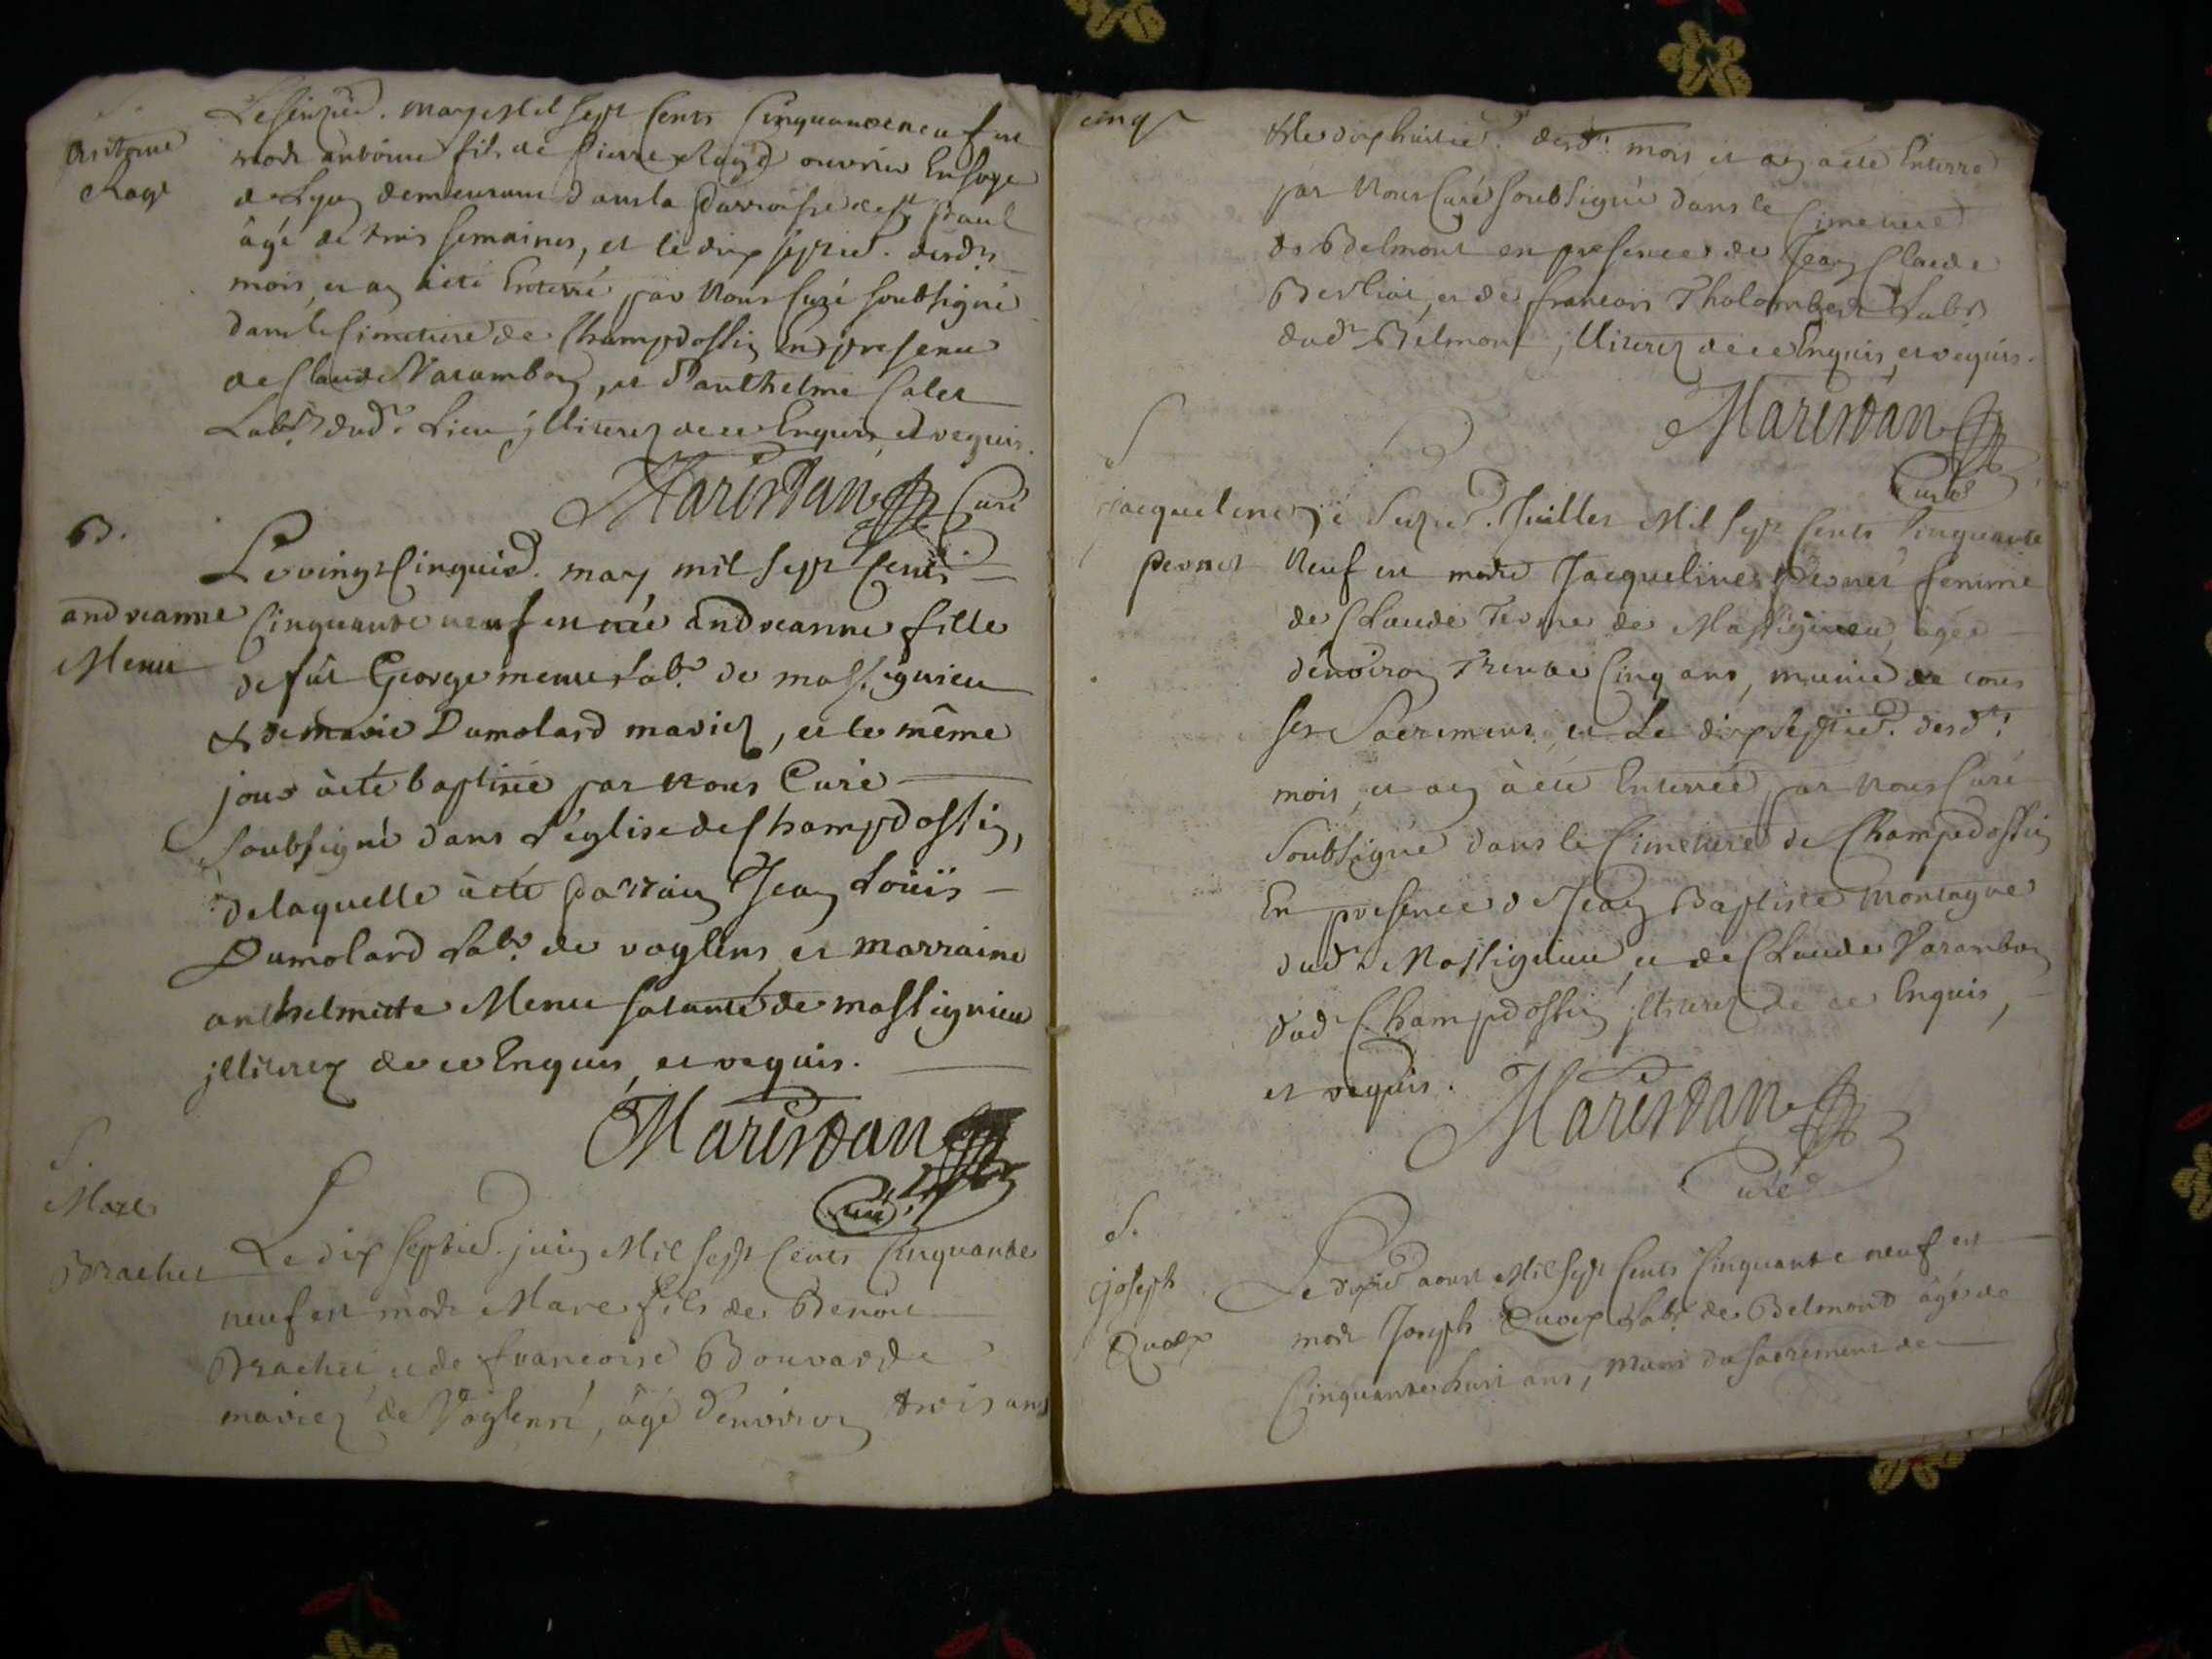 S.
Antoine
Rage
Le seizie. may Mil sept Cents Cinquante neuf est
mort antoine fils de Pierre ouvrier En soye
de Lyon demeurant dans la parroisse de st paul
âgé de trois semaines, et le dix septie. desdts
mois, et an à été Enterré par Nous Curé soubsigné
dans le Cimetiere de Champdossin En presence
de Claude Varambon, et d'anthelme Calet
Labrs dudt Lieu illiterez de ce Enquis, et requis.
Maristan Curé
B.
andreanne
Menu
Le vingt Cinquie. may mil sept Cents
Cinquante neuf est née andreanne fille
de fût George menu Labr. de massignieu
& de marie Dumolard mariez, et le même
jour à été baptisée par Nous Curé
soubsigné dans L'église de Champdossin,
de laquelle à été parrain Jean Loüis
Dumolard Labr. de voglens, et marraine
anthelmette Menu de massignieu
illiterez de ce Enquis, et requis.
Maristan
Curé
S.
Marc
Brachet
Le dix septie. juin Mil sept Cents Cinquante
neuf est mort Marc fils de Benoit
Brachet et de francoise Bouvarde
mariez de Voglens, âgé d'environ trois ans
cinq
& le dix huitie. desdts mois et an à été Enterré
par Nous Curé soubsigné dans le Cimetiere
de Belmont en presence de Jean Claude
Berlioz, et de francois Tholomber Labrs
dudt Belmont, illiterez de ce Enquis, et requis.
Maristan
Curé
S
jacqueline
pernet
Le seizie. Juillet Mil sept Cents Cinquante
Neuf est morte Jacqueline Pernet femme
de Claude de Massignieu, âgée
d'environ Trente Cinq ans, munie de tous
ses Sacremens, et Le dix septie. desdts
mois, et an à été Enterrée par Nous Curé
soubsigné dans le Cimetiere de Champdossin
En presence de Jean Baptiste montagne
dudt Massignieu, et de Claude Varambon
dudt Champdossin illiterez de ce Enquis,
et requis.
Maristan
Curé
S.
joseph
Le dixie aoust Mil sept Cents Cinquante neuf est
mort Joseph Labr. de Belmont âgé de
Cinquante huit ans, muni du sacrement de